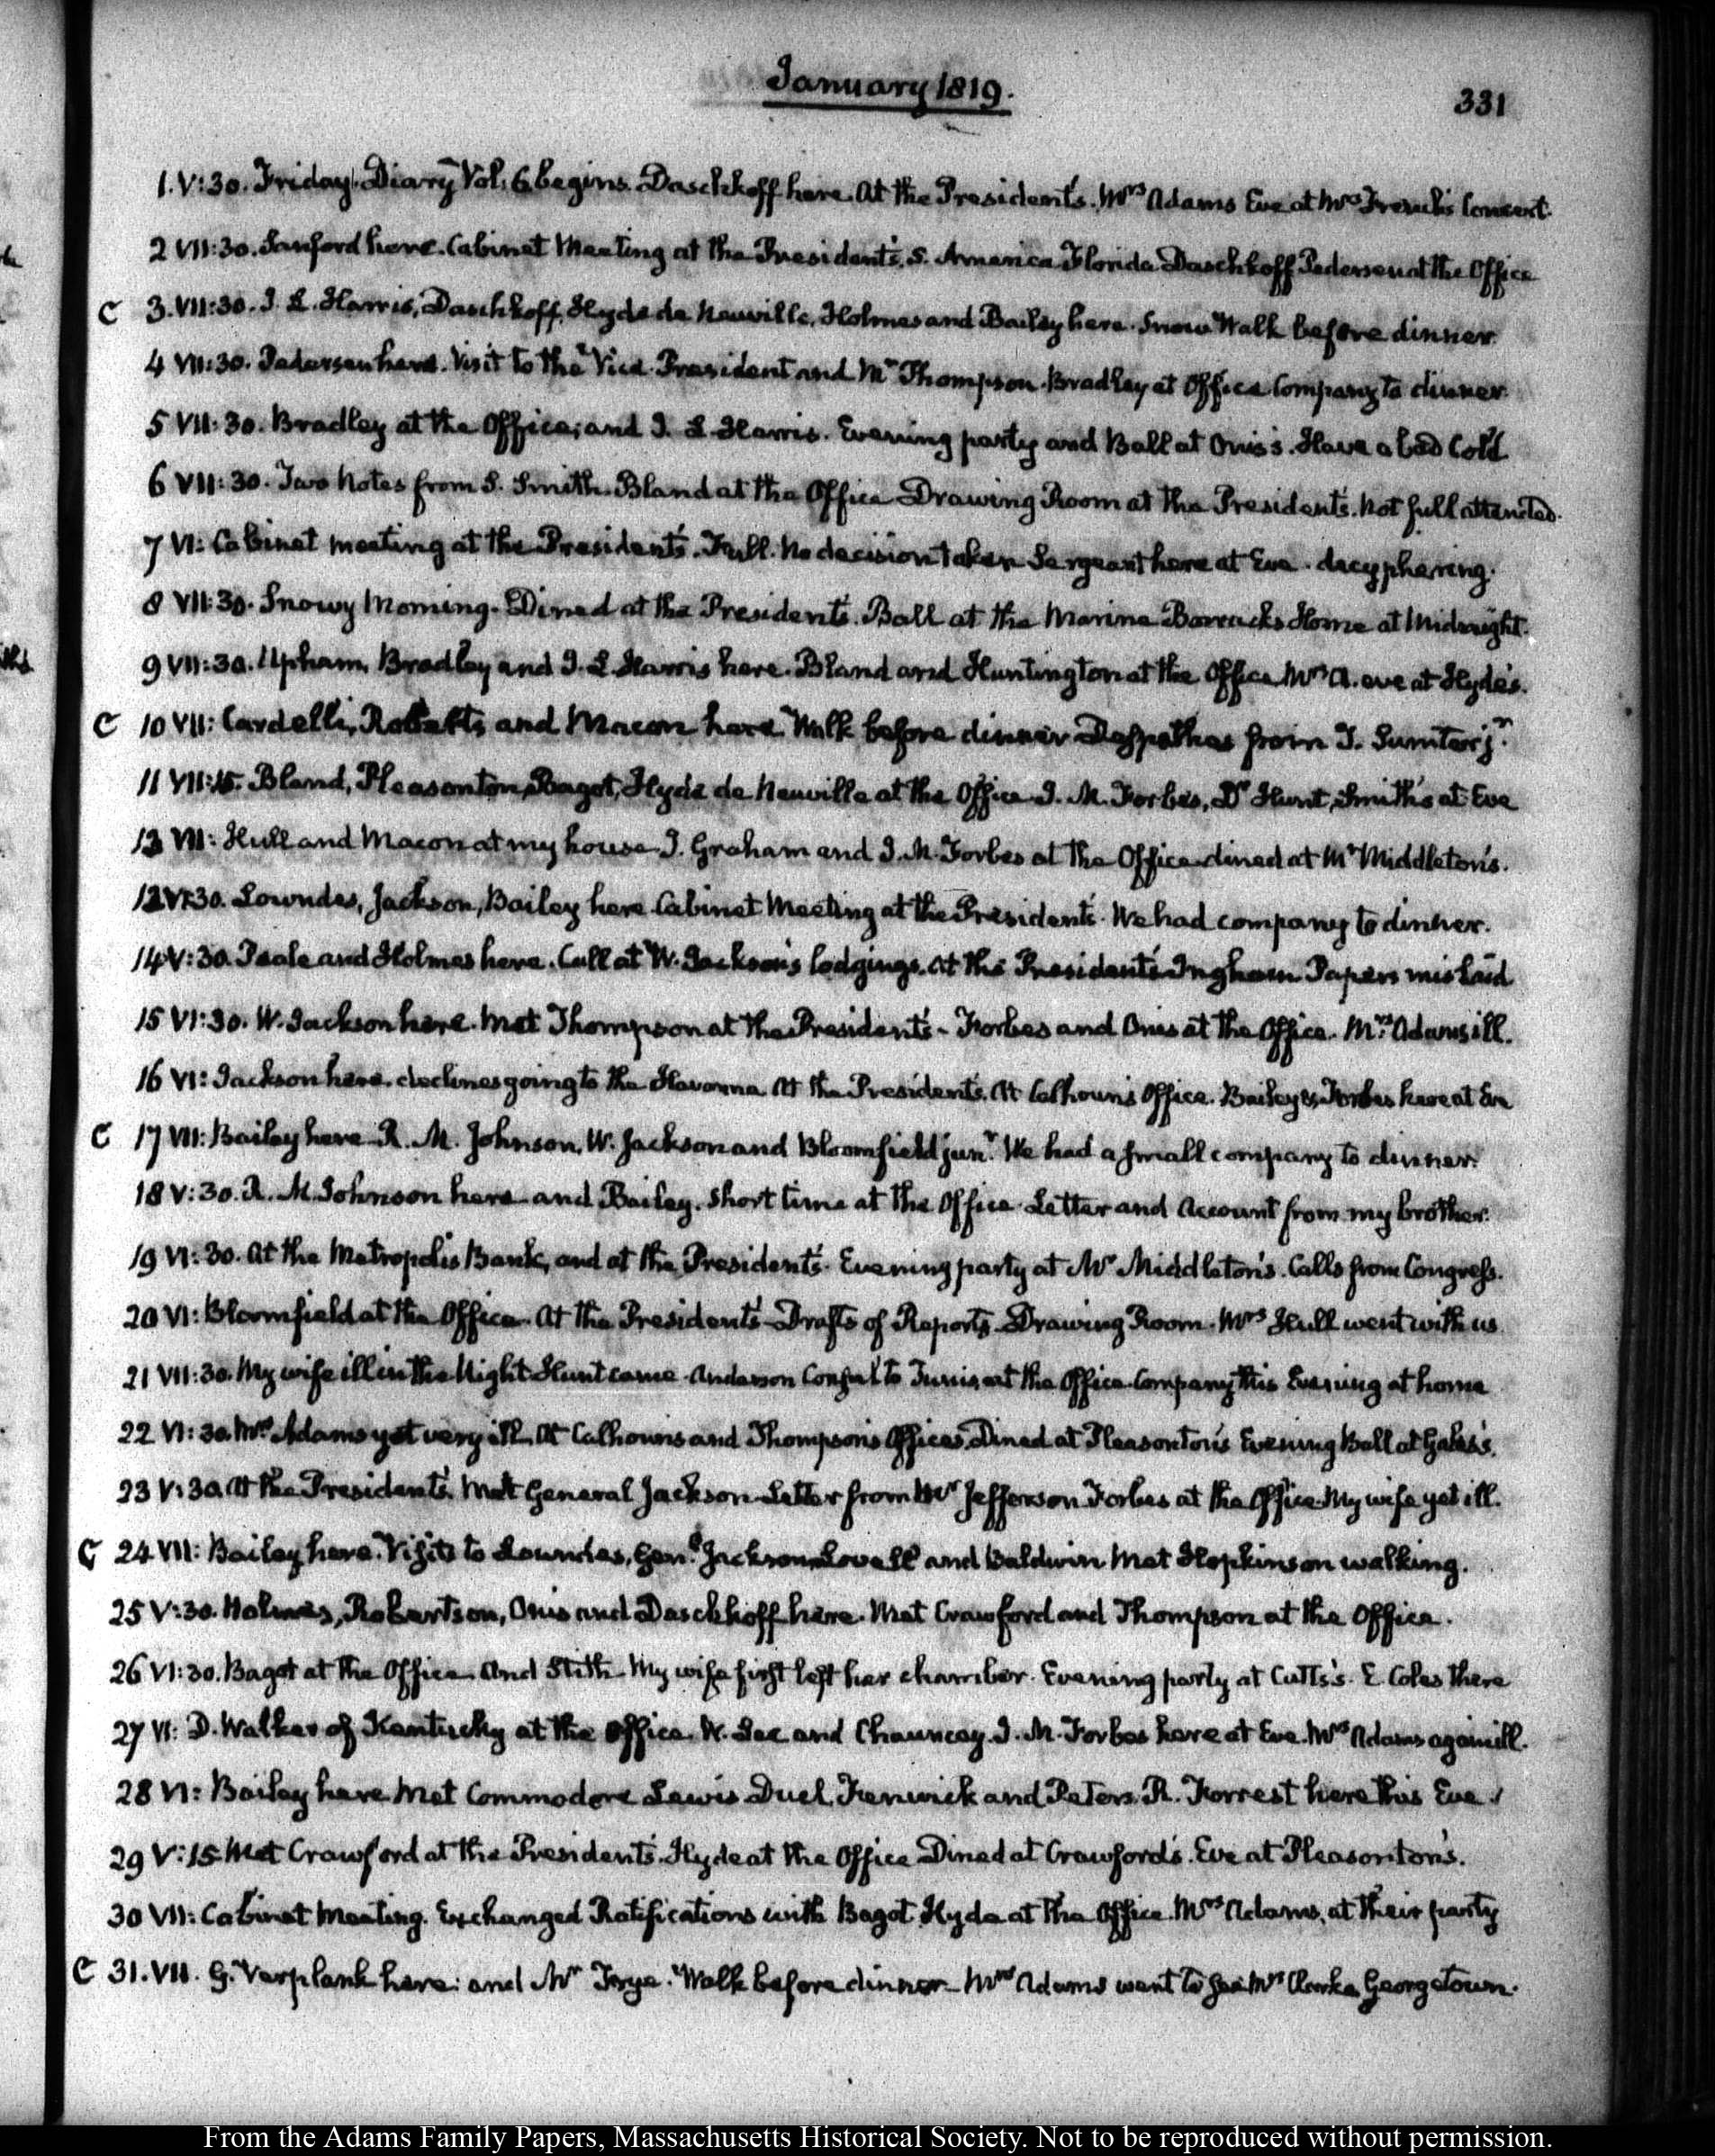 January 1819.
331
1. V:30. Friday. Diary Vol. 6 begins. Daschkoff here. At the President's. Mrs Adams Eve at Mrs French's Concert.
2 VII:30. Sanford here. Cabinet Meeting at the President's. S. America Florida. Daschkoff Pedersen at the Office
C 3. VII:30. J. L. Harris, Daschkoff, Hyde de Neuville, Holmes and Bailey here. Snow Walk before dinner
4 VII:30. Pedersen here. Visit to the Vice-President and Mr Thompson. Bradley at Office Company to dinner
5 VII:30. Bradley at the Office; and J. L. Harris. Evening party and Ball at Onis's. Have a bad Cold
6 VII:30. Two Notes from S. Smith. Bland at the Office Drawing Room at the President's. Not full attended.
7 VI: Cabinet meeting at the President's. Full. No decision taken Sergeant here at Eve. decyphering.
8 VII:30. Snowy Morning. Dined at the President's. Ball at the Marine Barracks Home at Midnight.
9 VII:30. Upham, Bradley and J. L. Harris here. Bland and Huntington at the Office Mrs A. eve at Hyde's.
C 10 VII: Cardelli, Roberts and Macon here. Walk before dinner Despatches from T. Sumter jr.
11 VII:15. Bland, Pleasonton, Bagot, Hyde de Neuville at the Office J. M. Forbes, Dr Hunt, Smith's at Eve
12 VII: Hull and Macon at my house J. Graham and J. M. Forbes at the Office dined at Mr Middleton's.
13 VI:30. Lowndes, Jackson, Bailey here. Cabinet Meeting at the President's. We had company to dinner.
14 V:30. Peale and Holmes here. Call at W. Jackson's lodgings. At the President's Ingham Papers mislaid
15 VI:30. W. Jackson here. Met Thompson at the President's - Forbes and Onis at the Office. Mrs Adams ill.
16 VI: Jackson here. declines going to the Havanna. At the President's. At Calhoun's Office. Bailey & Forbes here at Eve
C 17 VII: Bailey here R. M. Johnson, W. Jackson and Bloomfield junr. We had a small company to dinner.
18 V:30. R. M. Johnson here and Bailey. Short time at the Office. Letter and Account from my brother.
19 VI:30. At the Metropolis Bank, and at the President's. Evening party at Mr Middleton's. Calls from Congress.
20 VI: Bloomfield at the Office. At the President's. Drafts of Reports. Drawing Room. Mrs Hull went with us
21 VII:30. My wife ill in the Night. Hunt came. Anderson Consul to Tunis at the Office. Company this Evening at home
22 VI:30. Mrs Adams yet very ill. At Calhoun's and Thompson's Offices. Dined at Pleasonton's Evening Ball at Gales's.
23 V:30. At the President's. Met General Jackson. Letter from Mr Jefferson Forbes at the Office. My wife yet ill.
C 24 VII: Bailey here. Visits to Lowndes, Genl Jackson, Lovell and Baldwin Met Hopkinson walking.
25 V:30. Holmes, Robertson, Onis and Daschkoff here. Met Crawford and Thompson at the Office.
26 VI:30. Bagot at the Office and Stith. My wife first left her chamber. Evening party at Cutts's. E. Coles there
27 VI: D. Walker of Kentucky at the Office. W. Lee and Chauncey. J. M. Forbes here at Eve. Mrs Adams again ill.
28 VI: Bailey here Met Commodore Lewis Duel, Fenwick and Peters. R. Forrest here this Eve.
29 V:15 Met Crawford at the President's. Hyde at the Office Dined at Crawford's. Eve at Pleasonton's.
30 VII: Cabinet Meeting. Exchanged Ratifications with Bagot. Hyde at the Office. Mrs Adams, at their party
C 31. VII. G. Verplank here: and Mr Frye. Walk before dinner Mrs Adams went to see Mrs Clarke Georgetown.
From the Adams Family Papers, Massachusetts Historical Society. Not to be reproduced without permission.